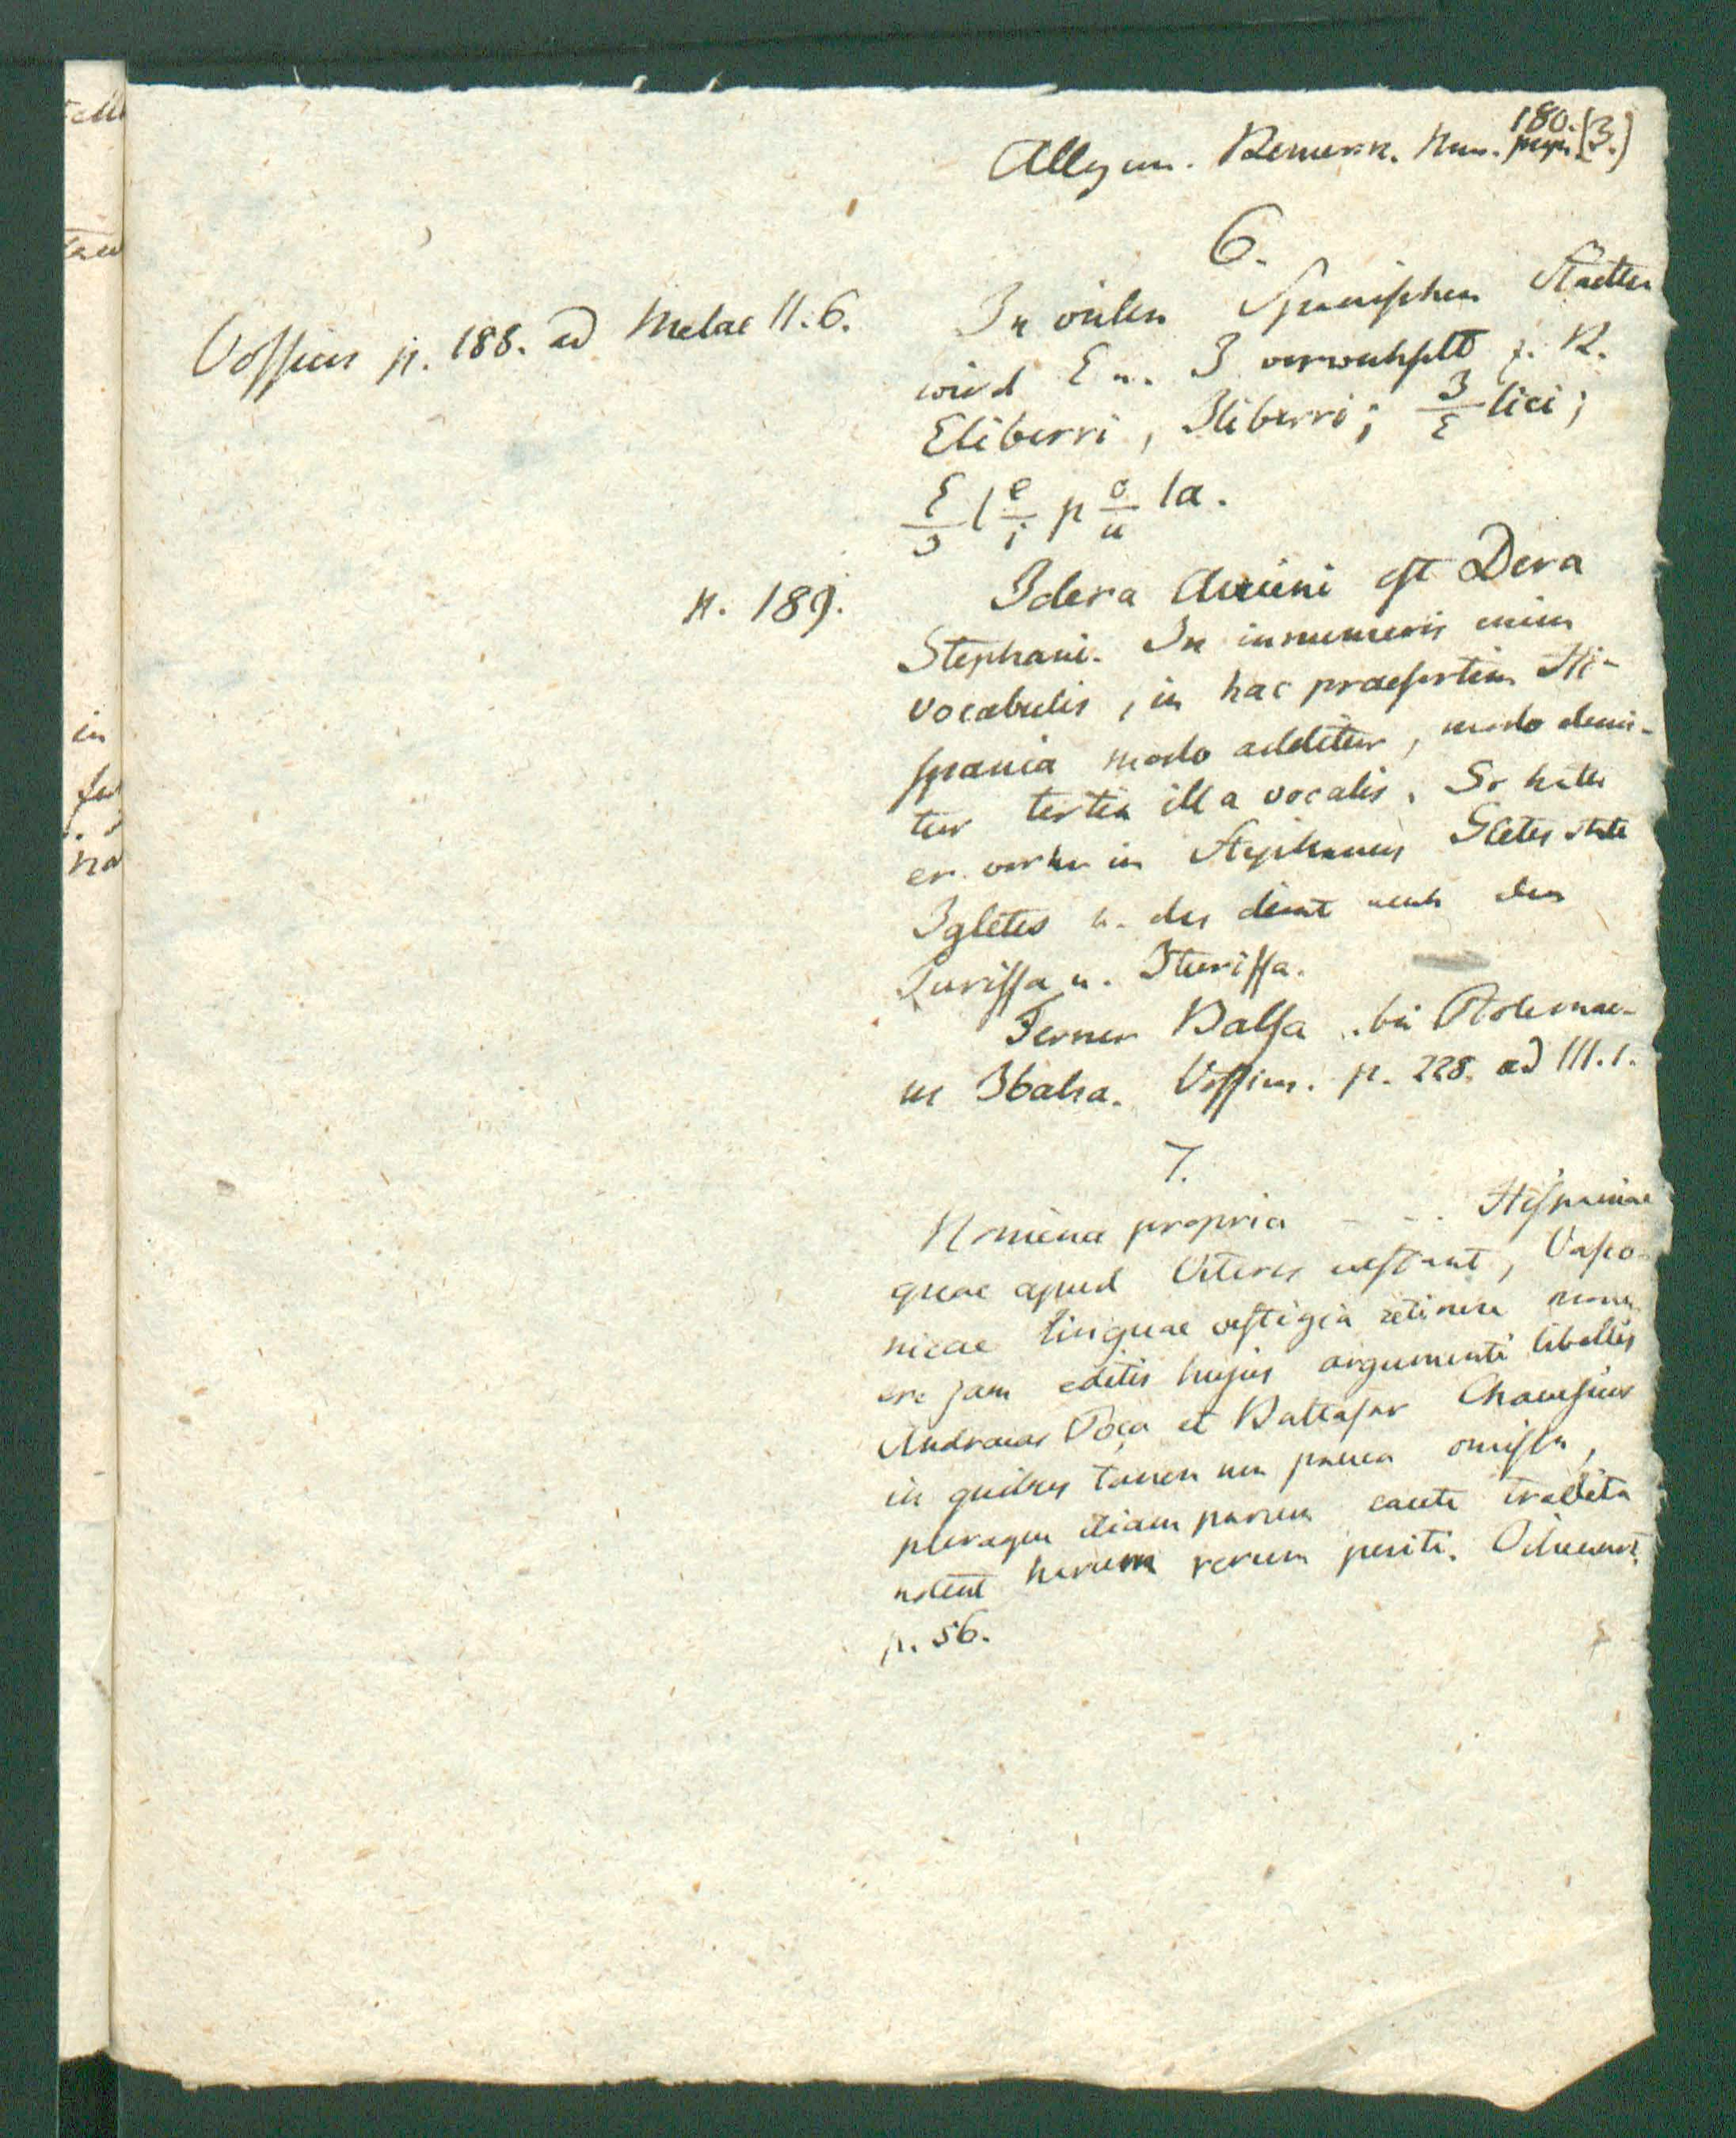 180.
Allgem. Bemerk. Num. pagin. [3.]
6.
Vossius p. 188. ad Melae II. 6.
In vielen Spanischen Städten
wird E u. I verwechselt z. B.
Eliberri, Iliberri; I/E lici;
E/I l e/i p o/u la.
p. 189.
Idera Avieni est Dera
Stephani. In innumeris enim
vocabulis, in hac praesertim Hi-
spania modo additur, modo demi-
tur tertia illa vocalis. So hatte
er vorher in Stephanus Gletes statt
Igletes u. des
Turissa u. Iturissa.
Ferner Balsa bei Ptolemae-
us Ibalsa. Vossius. p. 228. ad III. 1.
7.
Nomina propria - - . Hispaniae
quae apud Veteres exstant, Vasco-
nicae linguae vestigia retinere monu-
ere jam editis hujus argumenti libellis
Andraeas Poça et Baltasar Chauesius
in quibus tamen non pauca omissa,
pleraque etiam parum caute tradita
notent harum rerum periti. Oihenart.
p. 56.